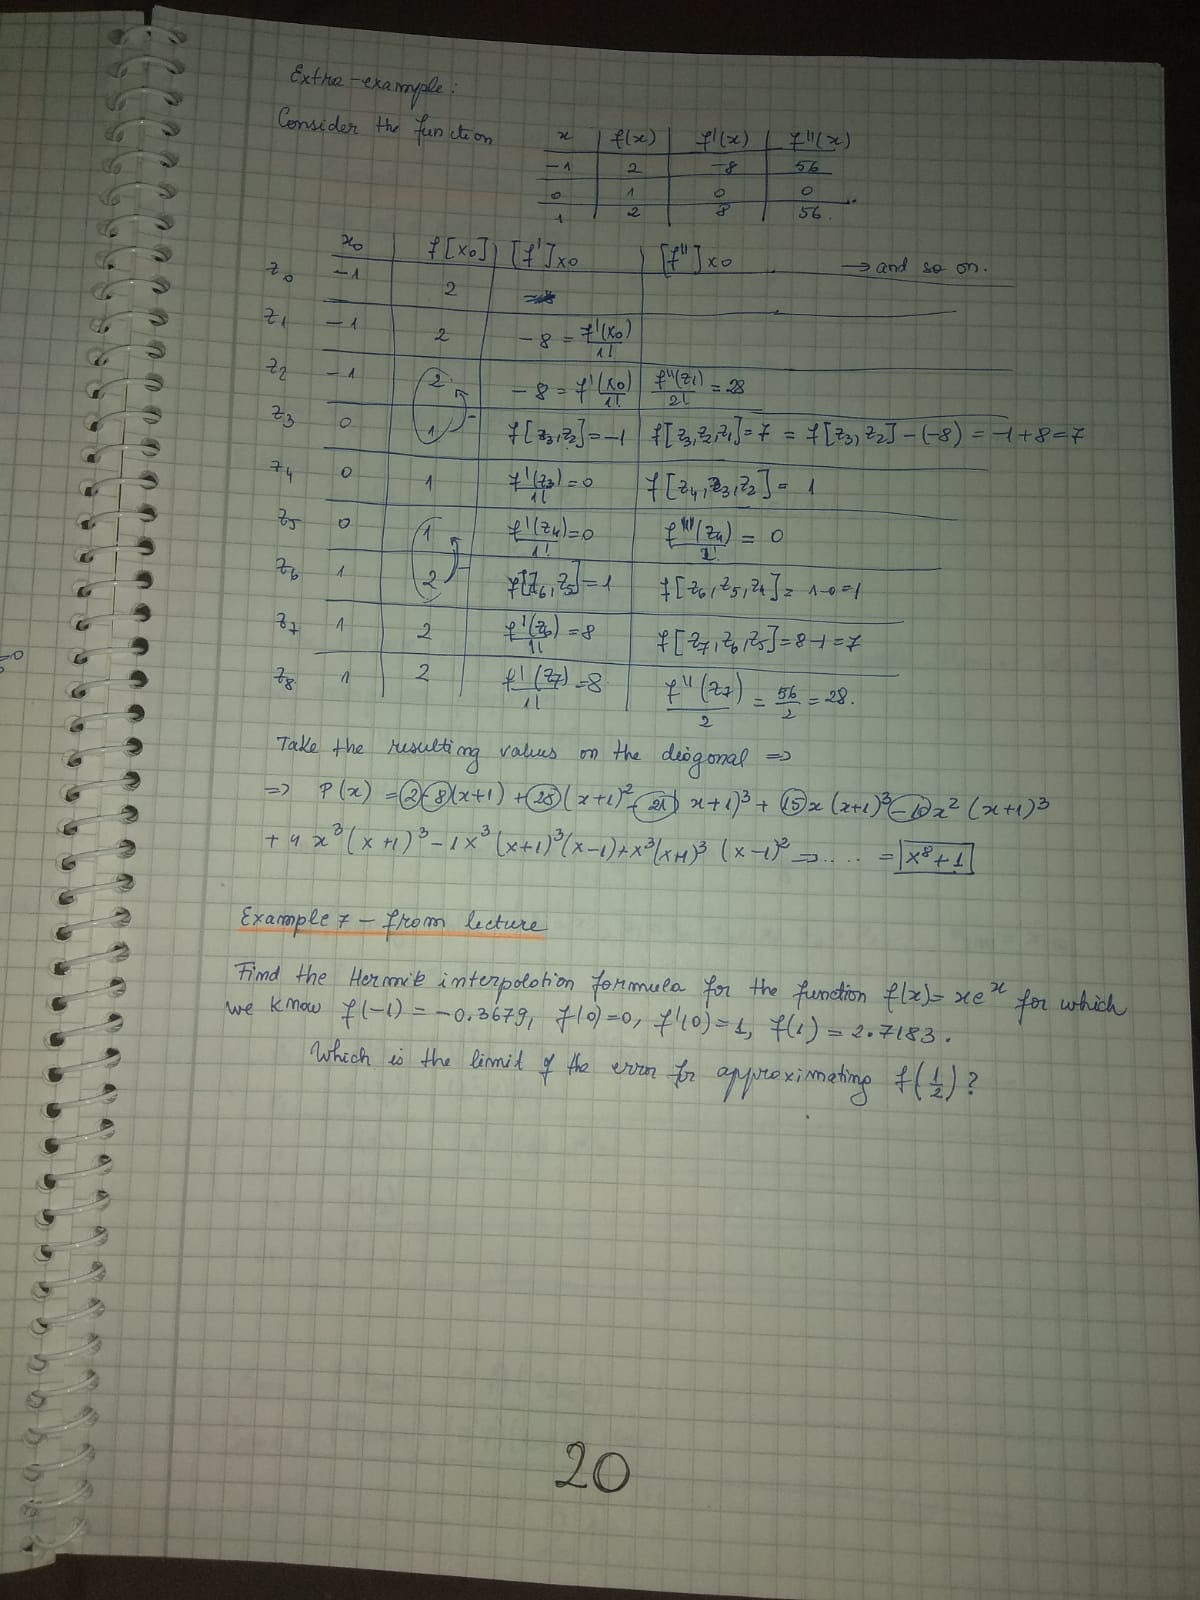 Extra-example:
Consider the function
x | f(x) | f'(x) | f''(x)
-1 | 2 | -8 | 56
0 | 1 | 0 | 0
1 | 2 | 8 | 56.
x0 | f[x0] | [f']x0 | [f'']x0 → and so on.
z0 -1 | 2
z1 -1 | 2 | -8 = f'(x0)/1!
z2 -1 | 2 | -8 = f'(x0)/1! | f''(z1)/2! = 28
z3 0 | 1 | f[z3,z2] = -1 | f[z3,z2,z1] = 7 = f[z3,z2] - (-8) = -1+8 = 7
z4 0 | 1 | f'(z3)/1! = 0 | f[z4,z3,z2] = 1
z5 0 | 1 | f'(z4)/1! = 0 | f''(z4)/2! = 0
z6 1 | 2 | f[z6,z5] = 1 | f[z6,z5,z4] = 1-0 = 1
z7 1 | 2 | f'(z6)/1! = 8 | f[z7,z6,z5] = 8-1 = 7
z8 1 | 2 | f'(z7)/1! = 8 | f''(z7)/2 = 56/2 = 28.
Take the resulting values on the diagonal =>
=> P(x) = 2-8(x+1) + 28(x+1)² - 21(x+1)³ + 15x(x+1)³ - 10x²(x+1)³
+ 4x³(x+1)³ - 1x³(x+1)³(x-1) + x³(x+1)³(x-1)² => ..... = x⁸+1
Example 7 - from lecture
Find the Hermite interpolation formula for the function f(x) = xeˣ for which
we know f(-1) = -0.3679, f(0)=0, f'(0)=1, f(1) = 2.7183.
Which is the limit of the error for approximating f(1/2)?
20